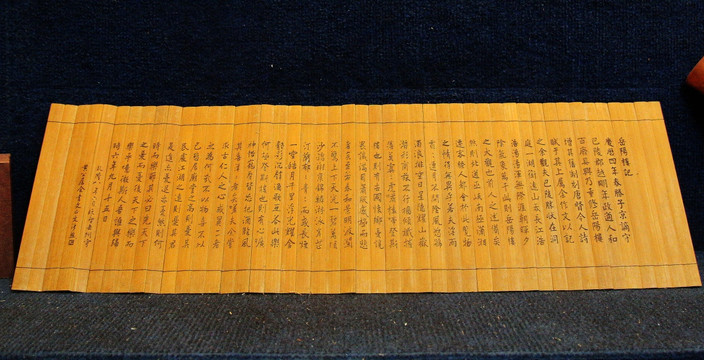 岳陽樓記
慶曆四年春滕子京謫守
巴陵郡越明年政通人和
百廢具興乃重修岳陽樓
增其舊制刻唐賢今人詩
賦于其上屬余作文以記
之予觀夫巴陵勝狀在洞
庭一湖銜遠山吞長江浩
浩湯湯橫無際涯朝暉夕
陰氣象萬千此則岳陽樓
之大觀也前人之述備矣
然則北通巫峽南極瀟湘
遷客騷人多會於此覽物
之情得無異乎若夫淫雨
霏霏連月不開陰風怒號
濁浪排空日星隱耀山嶽
潛形商旅不行檣傾楫摧
薄暮冥冥虎嘯猿啼登斯
樓也則有去國懷鄉憂讒
畏譏滿目蕭然感極而悲
者矣至若春和景明波瀾
不驚上下天光一碧萬頃
沙鷗翔集錦鱗游泳岸芷
汀蘭郁郁青青而或長煙
一空皓月千里浮光躍金
靜影沉璧漁歌互答此樂
何極登斯樓也則有心曠
神怡寵辱皆忘把酒臨風
其喜洋洋者矣嗟夫予嘗
求古仁人之心或異二者
之為何哉不以物喜不以
己悲居廟堂之高則憂其
民處江湖之遠則憂其君
是進亦憂退亦憂然則何
時而樂耶其必曰先天下
之憂而憂後天下之樂而
樂乎噫微斯人吾誰與歸
時六年九月十五日